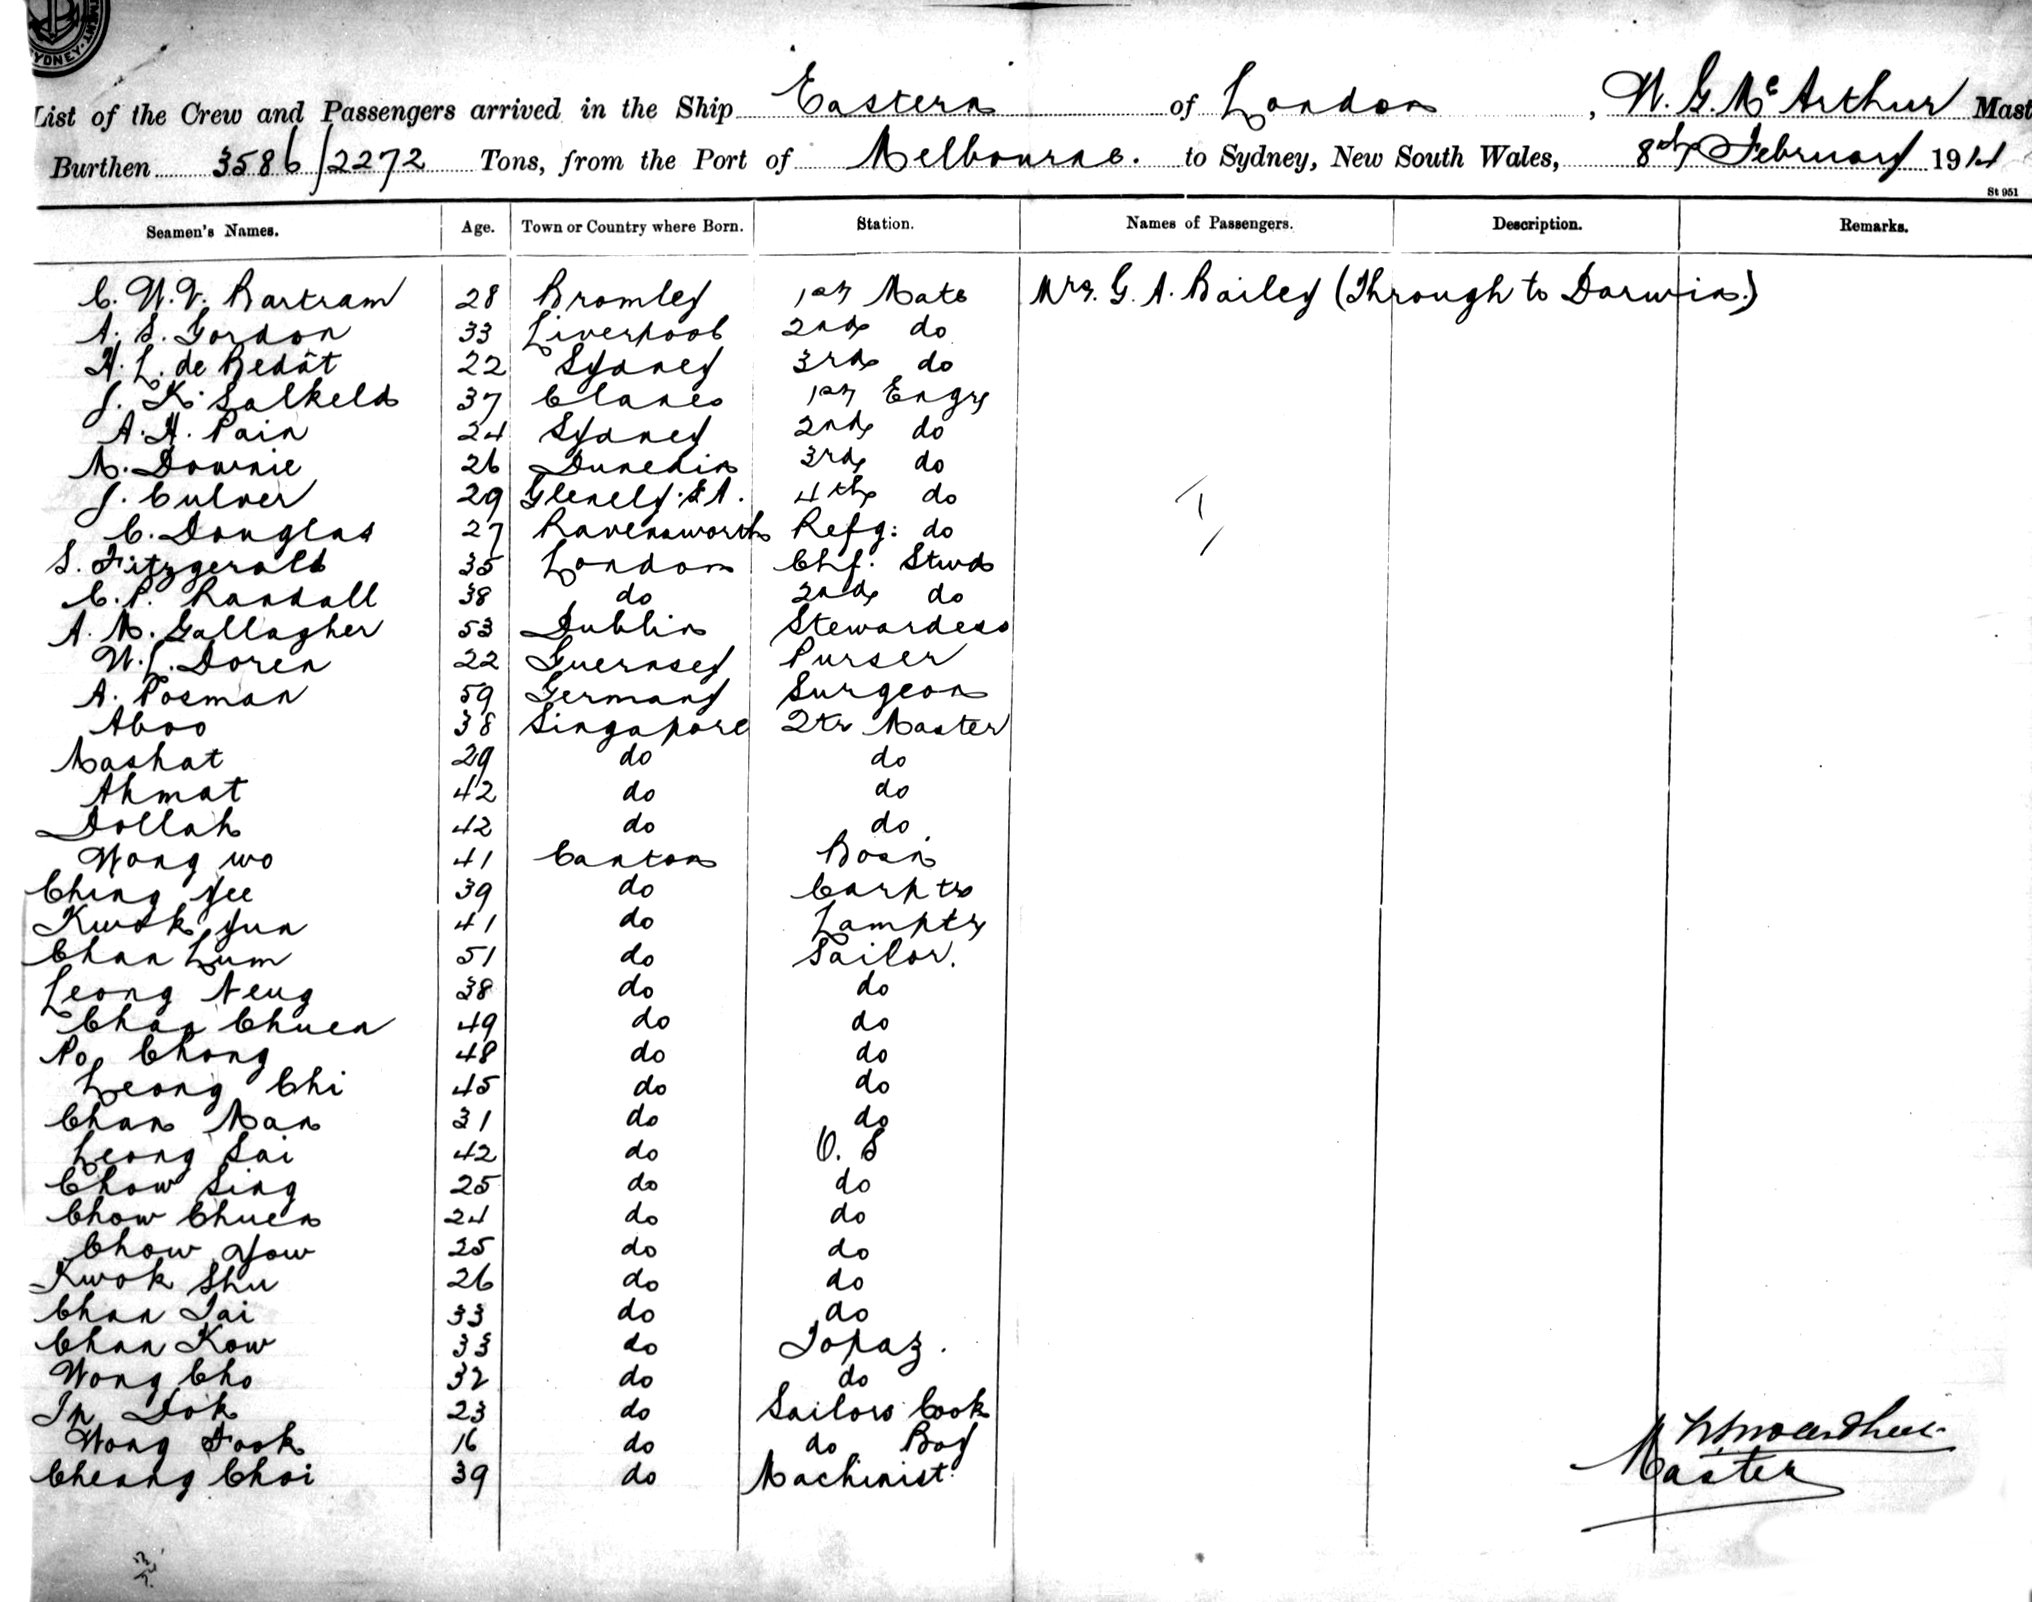 SYDNEY
List of the Crew and Passengers arrived in the Ship Eastern of London, W. G. McArthur Mast
Burthen 3586/2272 Tons, from the Port of Melbourne. to Sydney, New South Wales, 8th February 1914
St 951
Seamen's Names. Age. Town or Country where Born. Station. Names of Passengers. Description. Remarks.
C. W. V. Bartram 28 Bromley 1st Mate Mrs. G. A. Bailey (Through to Darwin.)
A. S. Gordon 33 Liverpool 2nd do
H. L. de Redât 22 Sydney 3rd do
J. K. Salkeld 37 1st Engr
A. H. Pain 24 Sydney 2nd do
M. Downie 26 Dunedin 3rd do
J. Culver 29 Glenelg. S.A. 4th do
C. Douglas 27 Ravensworth Refg: do
S. Fitzgerald 35 London Chf. Stwd
C. P. Randall 38 do 2nd do
A. M. Gallagher 53 Dublin Stewardess
W. L. Doren 22 Guernsey Purser
A. Posman 59 Germany Surgeon
Aboo 38 Singapore Qtr Master
Mashat 29 do do
Ahmat 42 do do
Dollah 42 do do
Wong wo 41 Canton Bosn
Ching Yee 39 do Carptr
Kwok Yun 41 do Lamptr
Chan Lum 51 do Sailor.
Leong Neug 38 do do
Chan Chuen 49 do do
Po Chong 48 do do
Leong Chi 45 do do
Chan Man 31 do do
Leong Sai 42 do O. S
Chow Sing 25 do do
Chow Chuen 24 do do
Chow Yow 25 do do
Kwok Shu 26 do do
Chan Tai 33 do do
Chan Kow 33 do Topaz.
Wong Cho 32 do do
Ip Dok 23 do Sailors Cook
Wong Fook 16 do do Boy
Cheang Choi 39 do Machinist
Master